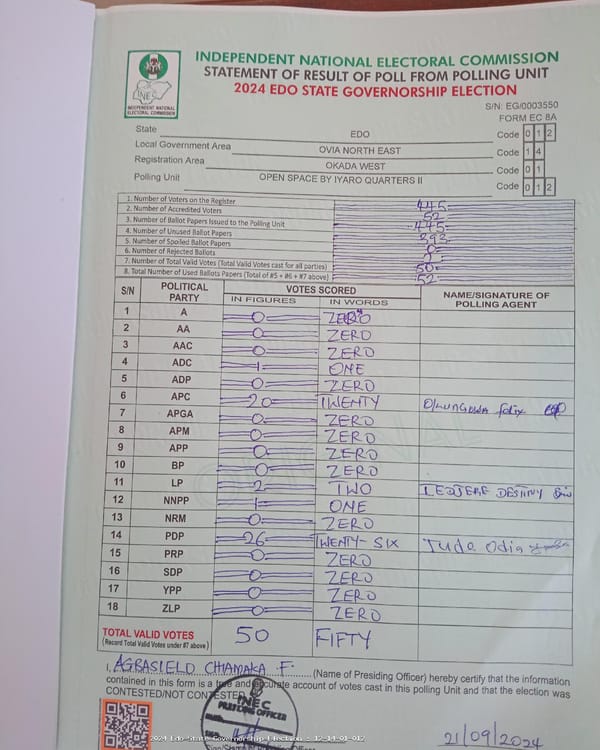 INDEPENDENT NATIONAL ELECTORAL COMMISSION
STATEMENT OF RESULT OF POLL FROM POLLING UNIT
2024 EDO STATE GOVERNORSHIP ELECTION
INEC
INDEPENDENT NATIONAL
ELECTORAL COMMISSION
S/N: EG/0003550
FORM EC 8A
State EDO Code 0 1 2
Local Government Area OVIA NORTH EAST Code 1 4
Registration Area OKADA WEST Code 0 1
Polling Unit OPEN SPACE BY IYARO QUARTERS II Code 0 1 2
1. Number of Voters on the Register 445
2. Number of Accredited Voters 52
3. Number of Ballot Papers Issued to the Polling Unit 445
4. Number of Unused Ballot Papers 393
5. Number of Spoiled Ballot Papers 0
6. Number of Rejected Ballots
7. Number of Total Valid Votes (Total Valid Votes cast for all parties) 50
8. Total Number of Used Ballots Papers (Total of #5 + #6 + #7 above) 52
S/N POLITICAL PARTY VOTES SCORED NAME/SIGNATURE OF POLLING AGENT
IN FIGURES IN WORDS
1 A 0 ZERO
2 AA 0 ZERO
3 AAC 0 ZERO
4 ADC 1 ONE
5 ADP 0 ZERO
6 APC 20 TWENTY felix
7 APGA 0 ZERO
8 APM 0 ZERO
9 APP 0 ZERO
10 BP 0 ZERO
11 LP 2 TWO DESTINY
12 NNPP 1 ONE
13 NRM 0 ZERO
14 PDP 26 TWENTY-SIX Jude Odia
15 PRP 0 ZERO
16 SDP 0 ZERO
17 YPP 0 ZERO
18 ZLP 0 ZERO
TOTAL VALID VOTES 50 FIFTY
(Record Total Valid Votes under #7 above)
I, AGBASIELD CHIAMAKA F. (Name of Presiding Officer) hereby certify that the information
contained in this form is a true and accurate account of votes cast in this polling Unit and that the election was
CONTESTED/NOT CONTESTED
INEC
PRESIDING OFFICER
2024 Edo State Governorship Election - 12-14-01-012
21/09/2024